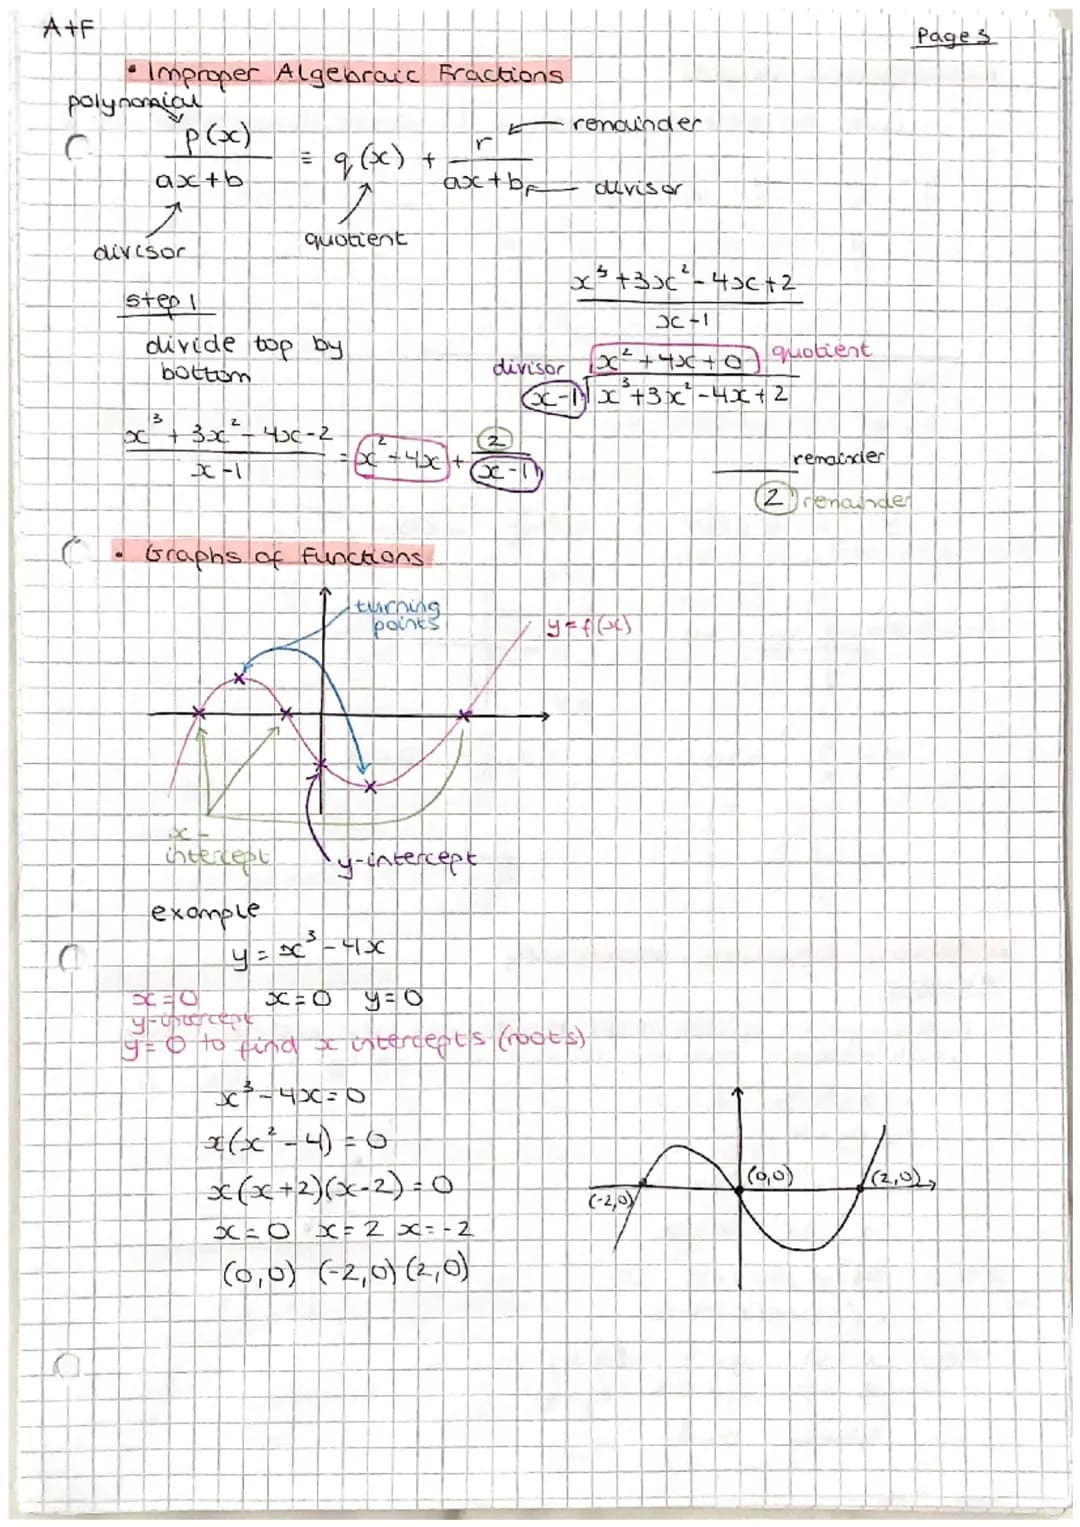 A+F
Page 3
• Improper Algebraic Fractions
polynomial
p(x)/ax+b ≡ q(x) + r/ax+b
remainder
divisor
divisor
quotient
step 1
divide top by
bottom
x³+3x²-4x+2/x-1
divisor x²+4x+0 quotient
x-1 x³+3x²-4x+2
remainder
2 remainder
x³+3x²-4x-2/x-1 = x²-4x + 2/x-1
• Graphs of functions
turning
points
y=f(x)
x-
intercept
y-intercept
example
y = x³-4x
x=0 x=0 y=0
y-intercept
y=0 to find x intercepts (roots)
x³-4x=0
x(x²-4)=0
x(x+2)(x-2)=0
x=0 x=2 x=-2
(0,0) (-2,0) (2,0)
(-2,0) (0,0) (2,0)